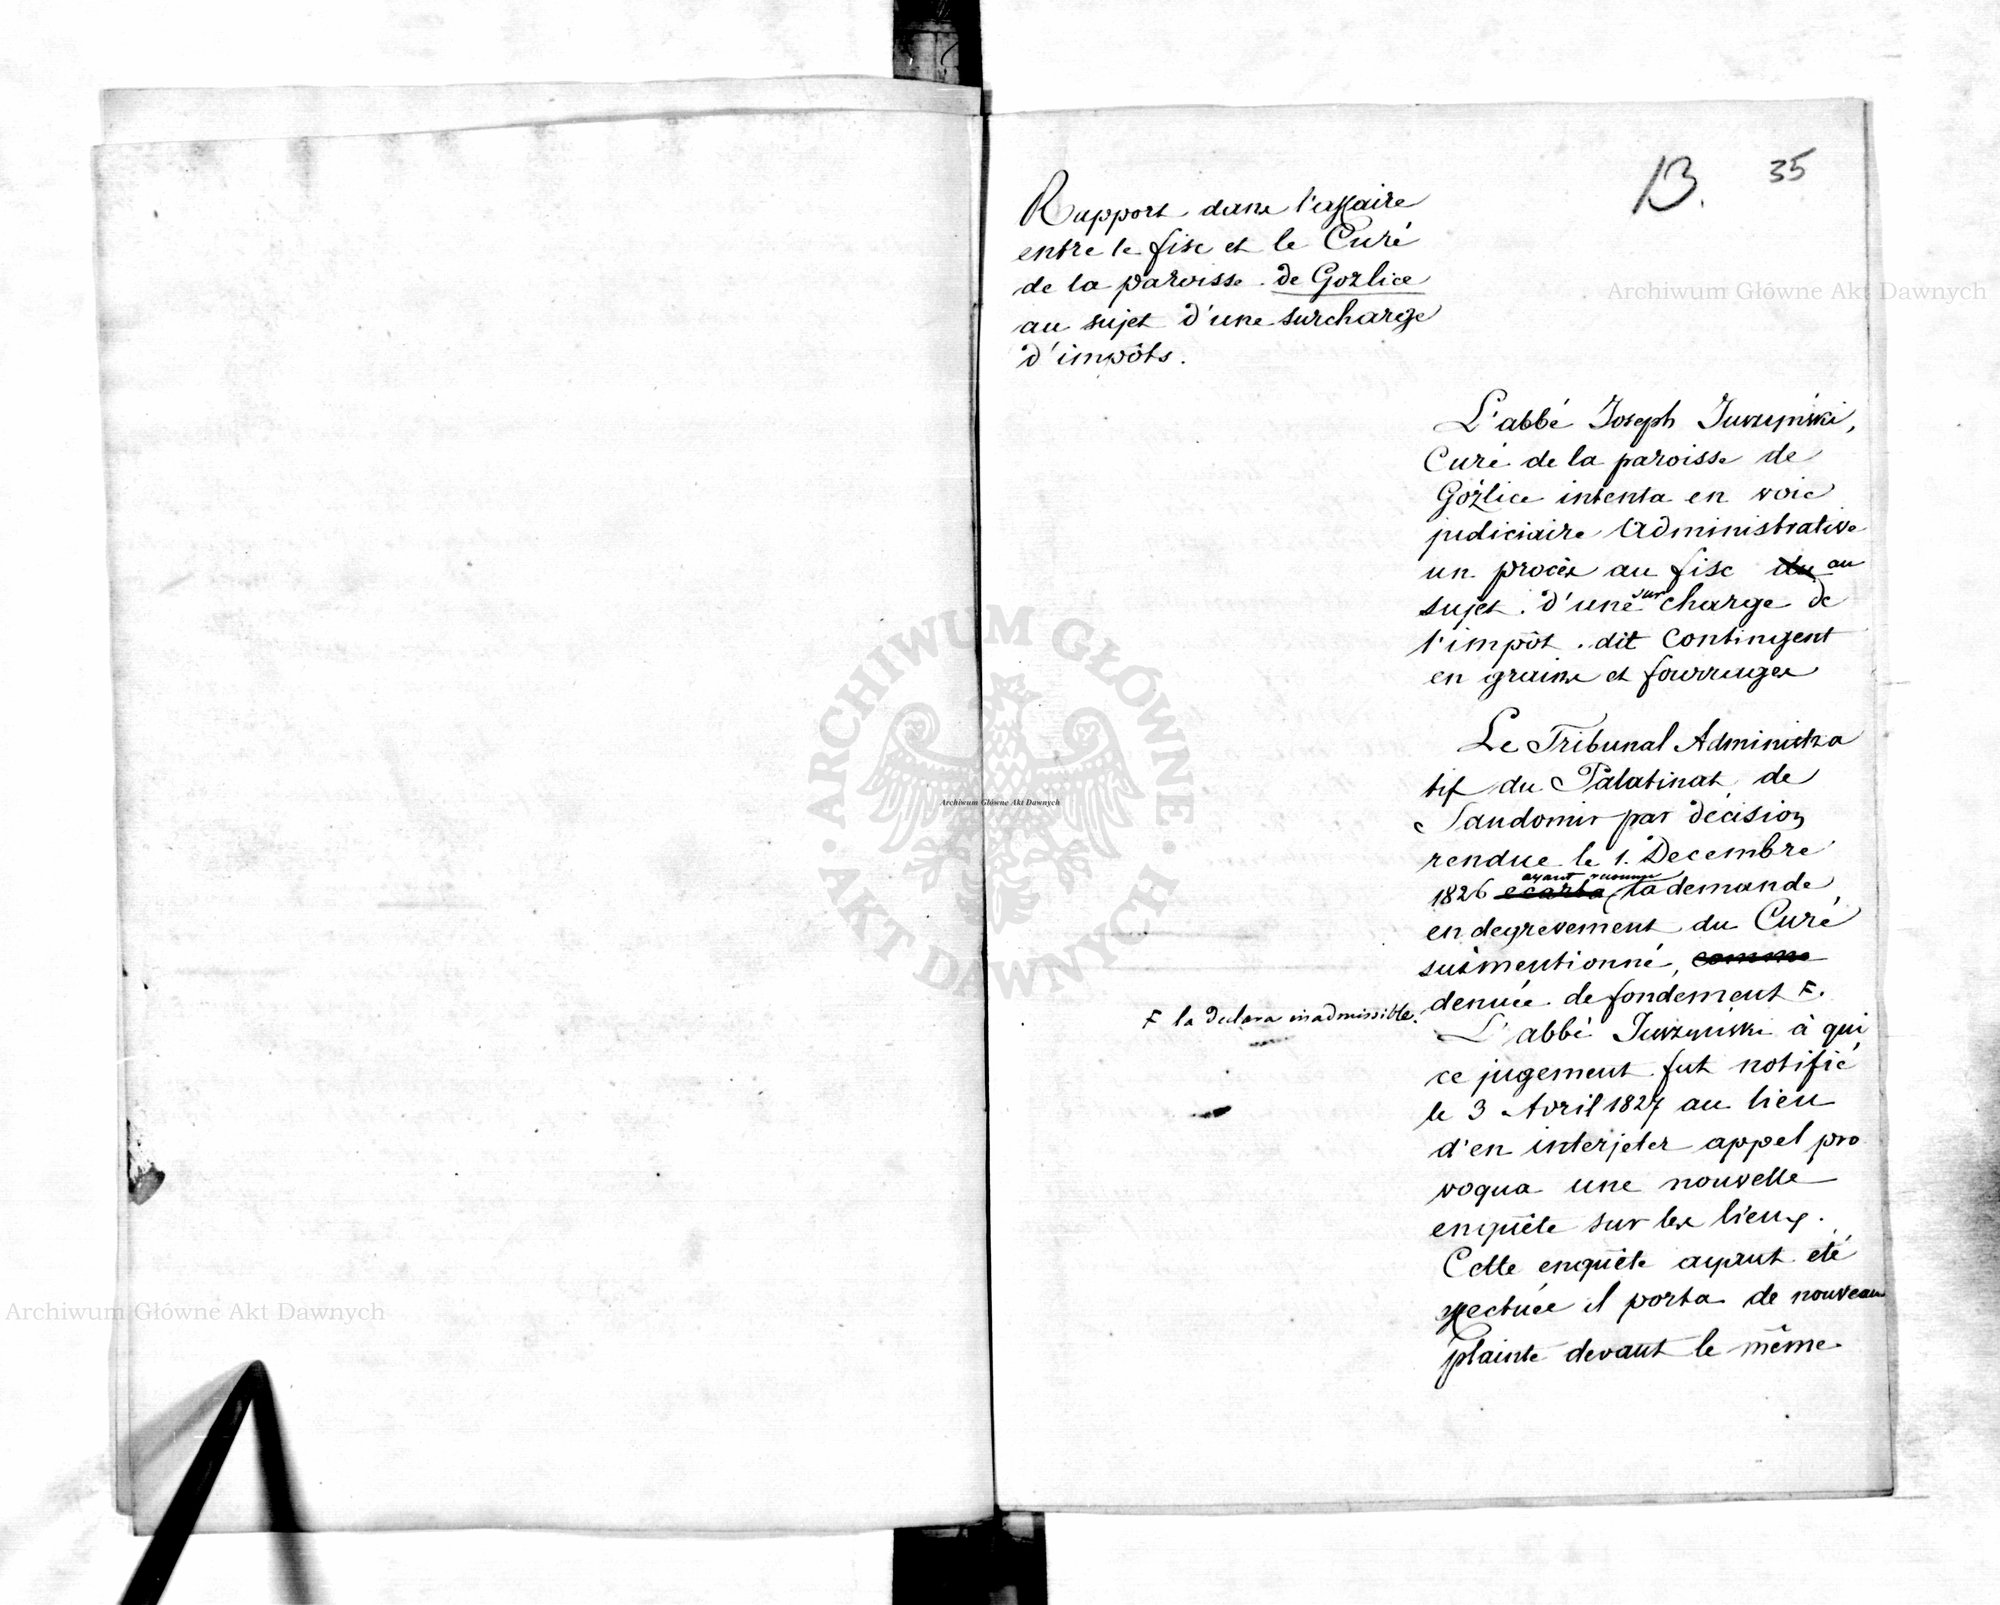 B. 35
Rapport dans l'affaire
entre le fisc et le Curé
de la paroisse de Gozlice
au sujet d'une surcharge
d'impôts.
L'abbé Joseph Jurzyński,
Curé de la paroisse de
Goźlice intenta en voie
judiciaire Administrative
un procès au fisc du au
sujet d'une surcharge de
l'impôt dit Contingent
en grains et fourrages
Le Tribunal Administra
tif du Palatinat de
Sandomir par décision
rendue le 1. Decembre
1826 ecarta ayant reconnu la demande
en degrevement du Curé
susmentionné, comme
denuée de fondement F.
F la declara inadmissible.
L'abbé Jurzyński à qui
ce jugement fut notifié
le 3 Avril 1827 au lieu
d'en interjeter appel pro
voqua une nouvelle
enquête sur les lieux.
Cette enquête ayant eté
effectuée il porta de nouveau
plainte devant le même
Archiwum Główne Akt Dawnych
Archiwum Główne Akt Dawnych
ARCHIWUM GŁÓWNE
AKT DAWNYCH
Archiwum Główne Akt Dawnych